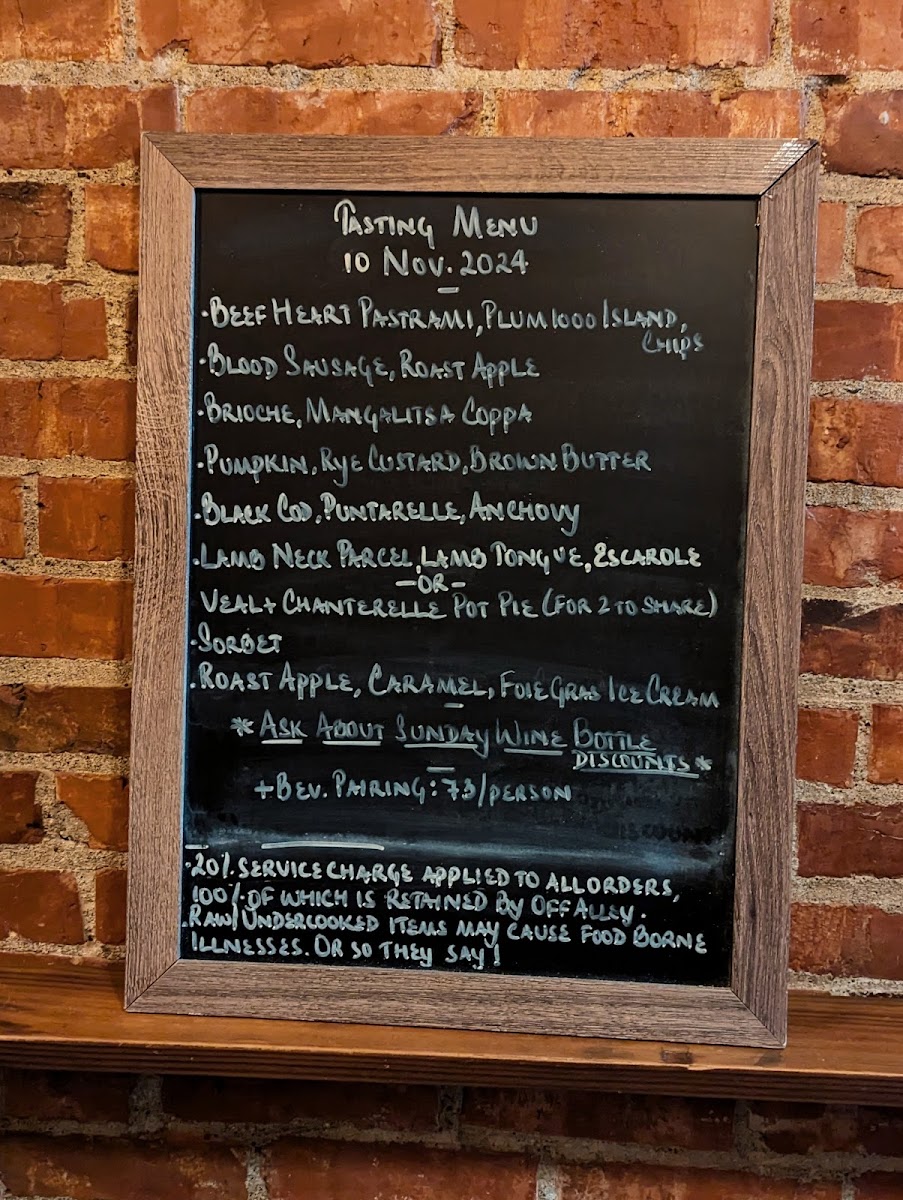 TASTING MENU
10 NOV. 2024
-
·BEEF HEART PASTRAMI, PLUM 1000 ISLAND,
CHIPS
·BLOOD SAUSAGE, ROAST APPLE
·BRIOCHE, MANGALITSA COPPA
·PUMPKIN, RYE CUSTARD, BROWN BUTTER
·BLACK COD, PUNTARELLE, ANCHOVY
·LAMB NECK PARCEL, LAMB TONGUE, ESCAROLE
-OR-
VEAL + CHANTERELLE POT PIE (FOR 2 TO SHARE)
·SORBET
·ROAST APPLE, CARAMEL, FOIE GRAS ICE CREAM
-
* ASK ABOUT SUNDAY WINE BOTTLE
DISCOUNTS *
-
+ BEV. PAIRING: 73/PERSON
·20% SERVICE CHARGE APPLIED TO ALL ORDERS,
100% OF WHICH IS RETAINED BY OFF ALLEY.
·RAW/UNDERCOOKED ITEMS MAY CAUSE FOOD BORNE
ILLNESSES. OR SO THEY SAY!